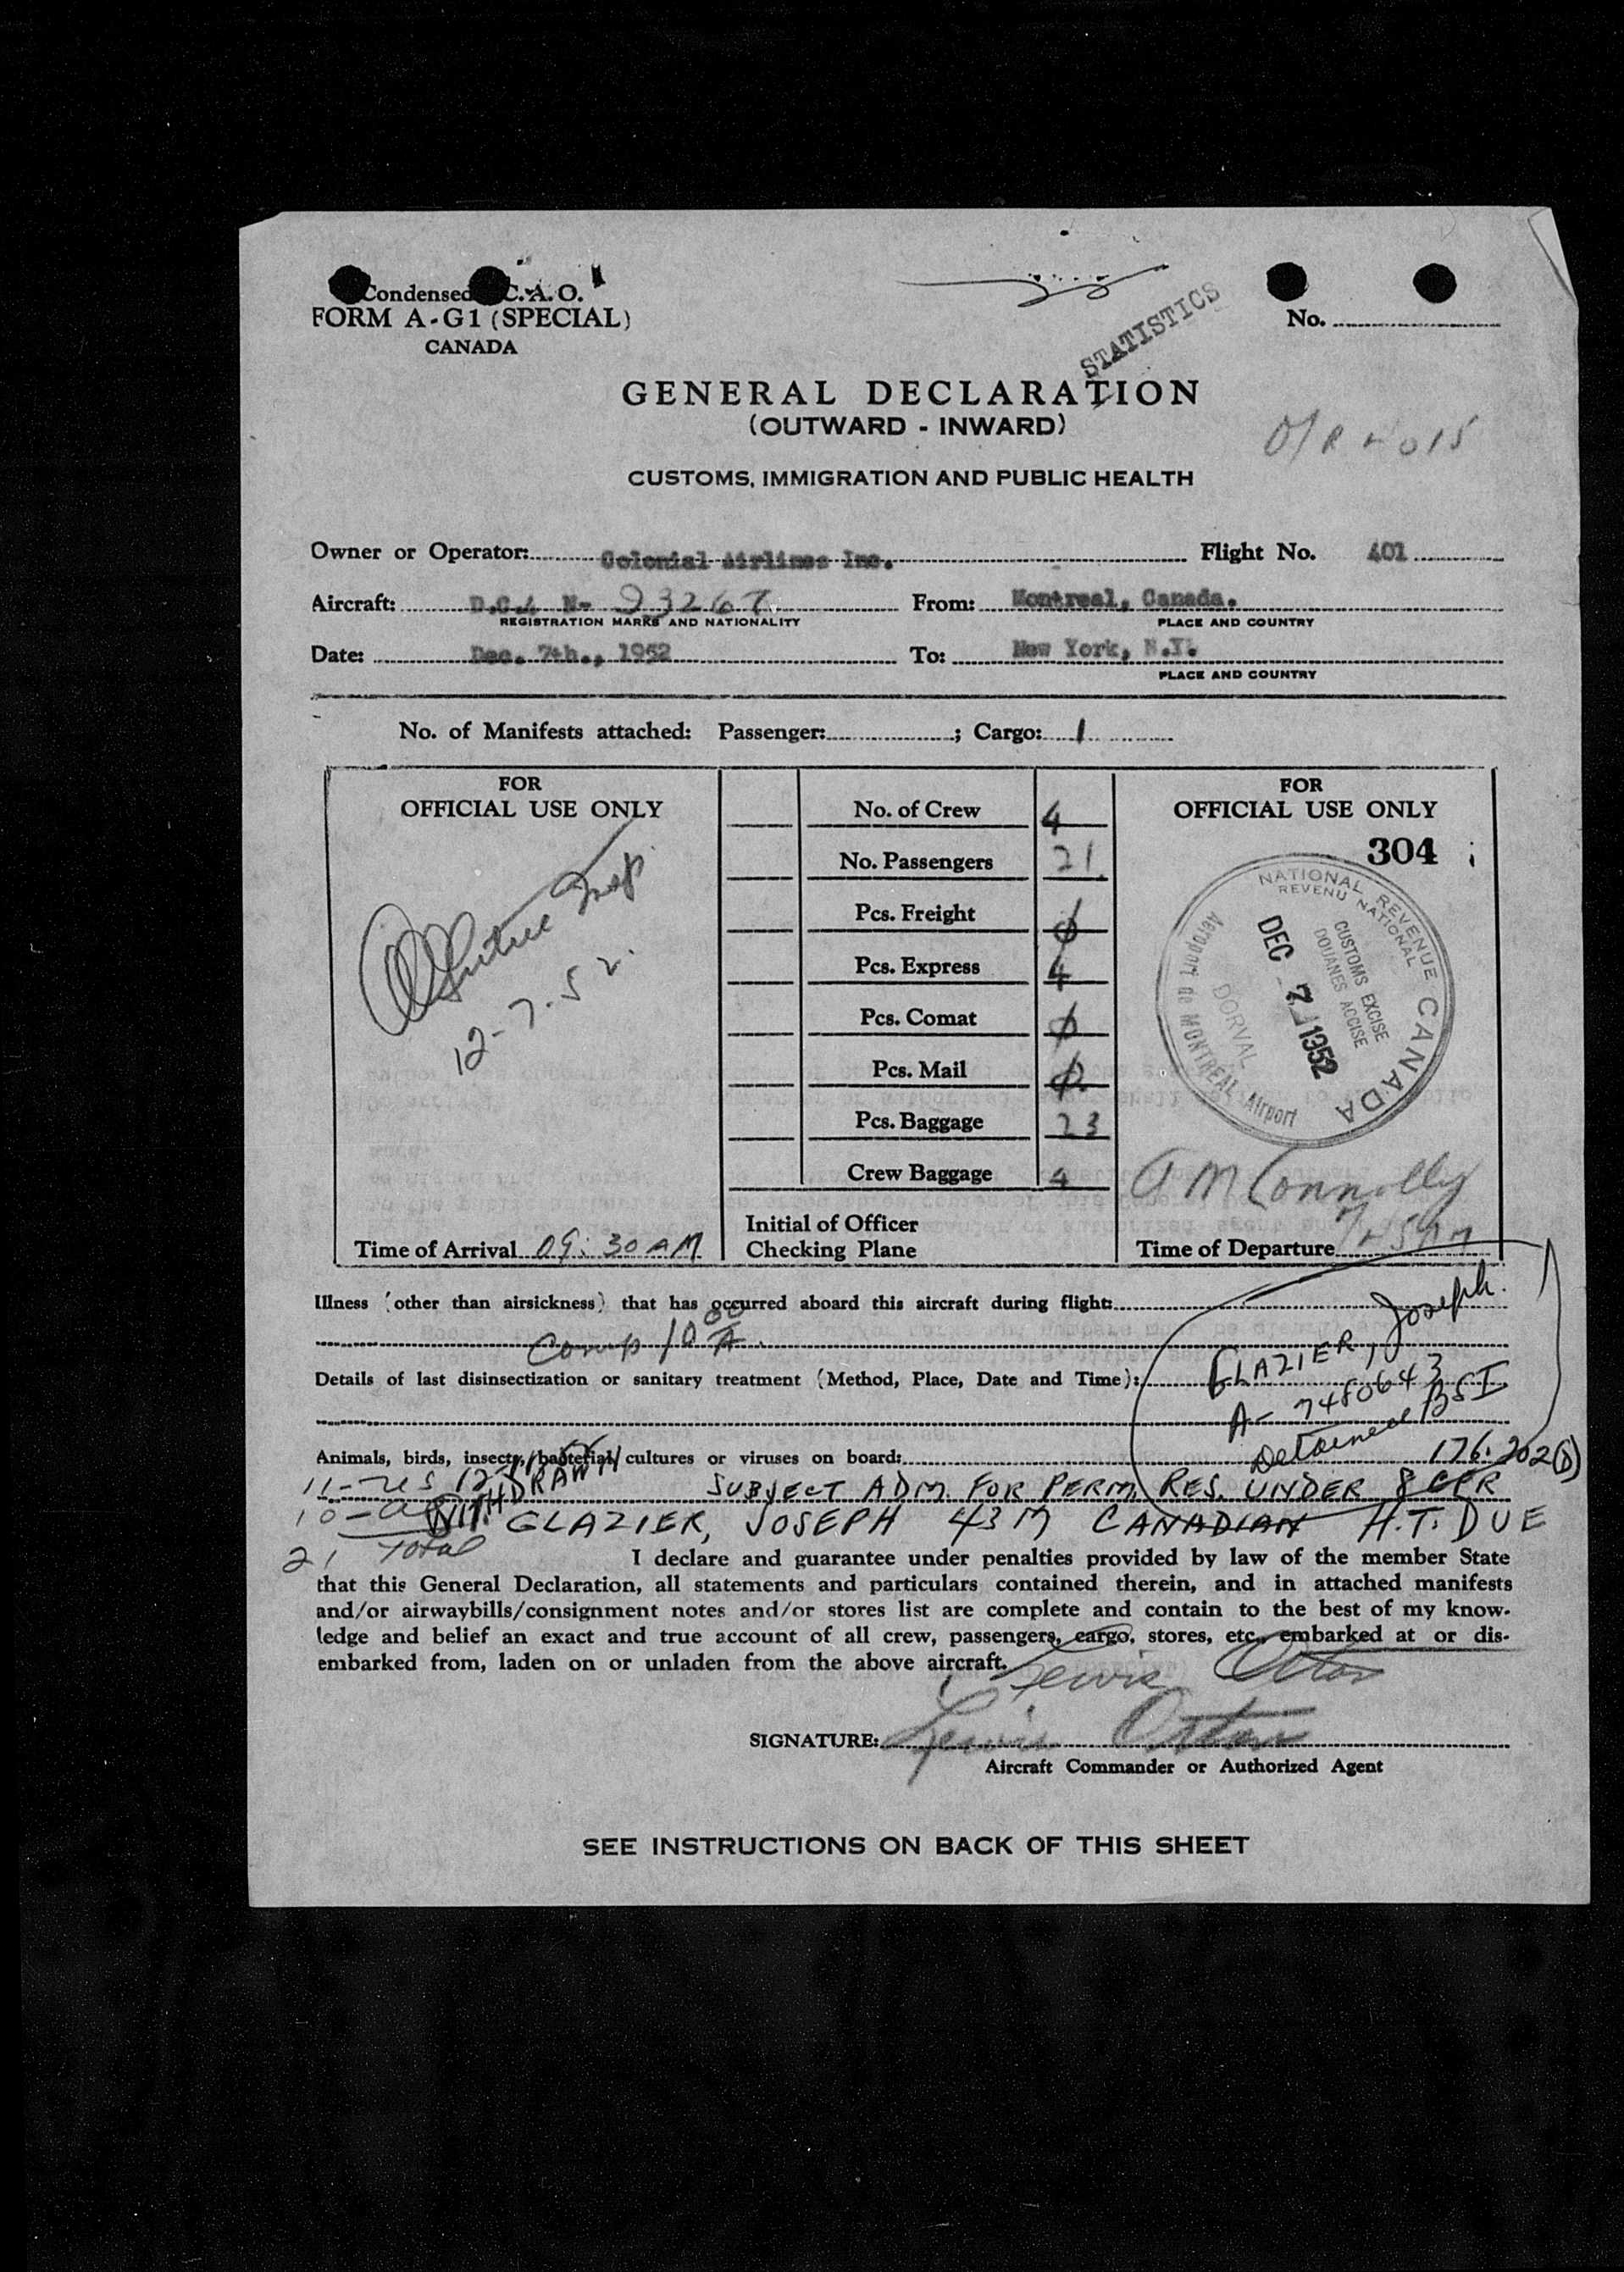 Condensed C.A.O.
FORM A-G1 (SPECIAL)
CANADA
No.
STATISTICS
GENERAL DECLARATION
(OUTWARD - INWARD)
CUSTOMS, IMMIGRATION AND PUBLIC HEALTH
Owner or Operator: Colonial Airlines Inc. Flight No. 401
Aircraft: D.C.4 N- 93267 From: Montreal, Canada.
REGISTRATION MARKS AND NATIONALITY PLACE AND COUNTRY
Date: Dec. 7th., 1952 To: New York, N.Y.
PLACE AND COUNTRY
No. of Manifests attached: Passenger: ; Cargo: 1
FOR
OFFICIAL USE ONLY
12-7-52.
Time of Arrival 09:30 AM
No. of Crew 4
No. Passengers 21
Pcs. Freight
Pcs. Express 4
Pcs. Comat
Pcs. Mail
Pcs. Baggage 23
Crew Baggage 4
Initial of Officer
Checking Plane
FOR
OFFICIAL USE ONLY
304
NATIONAL REVENUE CANADA
REVENU NATIONAL
CUSTOMS EXCISE
DOUANES ACCISE
DEC -7 1952
DORVAL
Aeroport de MONTREAL Airport
Connolly
Time of Departure
Illness (other than airsickness) that has occurred aboard this aircraft during flight:
Comp 10 00 A.
GLAZIER, Joseph.
Details of last disinsectization or sanitary treatment (Method, Place, Date and Time):
A- 7480643
Detained BSI
Animals, birds, insects, bacterial cultures or viruses on board:
176.202(b)
WITHDRAWN
SUBJECT ADM. FOR PERM. RES. UNDER 8 CFR
GLAZIER, JOSEPH 43 M CANADIAN H.T. DUE
21 Total
I declare and guarantee under penalties provided by law of the member State
that this General Declaration, all statements and particulars contained therein, and in attached manifests
and/or airwaybills/consignment notes and/or stores list are complete and contain to the best of my know-
ledge and belief an exact and true account of all crew, passengers, cargo, stores, etc., embarked at or dis-
embarked from, laden on or unladen from the above aircraft.
Lewis Oston
SIGNATURE: Lewis Oston
Aircraft Commander or Authorized Agent
SEE INSTRUCTIONS ON BACK OF THIS SHEET